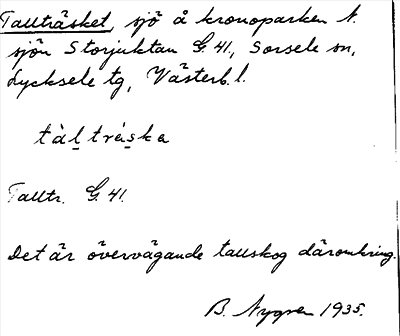 Tallträsket, sjö å kronoparken N.
sjön Storjuktan G. 41, Sorsele sn,
Lycksele tg, Västerb. l.
tàl̠ trás̠ka
Talltr. G. 41.
Det är övervägande tallskog däromkring.
B. Nygren 1935.